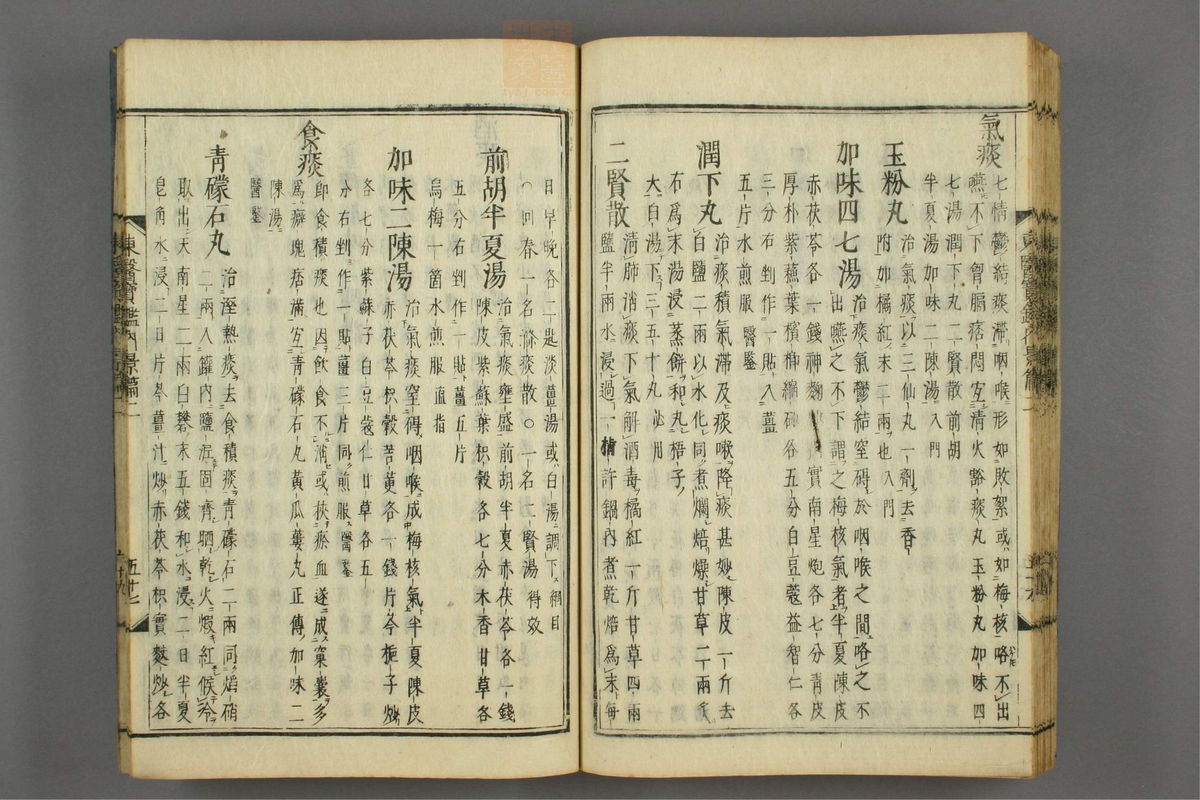 氣痰
七情鬱結痰滯咽喉形如敗絮或如梅核咯不出
嚥不下胷膈痞悶宜清火豁痰丸玉粉丸加味四
七湯潤下丸二賢散前胡
半夏湯加味二陳湯入門
玉粉丸
治氣痰以三仙丸一劑去香
附加橘紅末二兩也入門
加味四七湯
治痰氣鬱結窒碍於咽喉之間咯之不
出嚥之不下謂之梅核氣者半夏陳皮
赤茯苓各一錢神麴
枳實南星炮各七分青皮
厚朴紫蘇葉檳榔縮砂各五分白豆蔻益智仁各
三分右剉作一貼入薑
五片水煎服醫鑒
潤下丸
治痰積氣滯及痰嗽降痰甚妙陳皮一斤去
白鹽二兩以水化同煮爛焙燥甘草二兩炙
右爲末湯浸蒸餠和丸梧子
大白湯下三五十丸必用
二賢散
清肺消痰下氣解酒毒橘紅一斤甘草四兩
鹽半兩水浸過一指許鍋內煮乾焙爲末每
日早晩各二匙淡薑湯或白湯調下綱目
○回春一名滌痰散○一名二賢湯得效
前胡半夏湯
治氣痰壅盛前胡半夏赤茯苓各一錢
陳皮紫蘇葉枳殼各七分木香甘草各
五分右剉作一貼薑五片
烏梅一箇水煎服直指
加味二陳湯
治氣痰窒碍咽喉成梅核氣半夏陳皮
赤茯苓枳殼各一錢片芩梔子炒
各七分紫蘇子白豆蔻仁甘草各五
分右剉作一貼薑三片同煎服醫鑒
食痰
卽食積痰也因飮食不消或挾瘀血遂成窠囊多
爲癖塊痞滿宜靑礞石丸黃瓜蔞丸正傳加味二
陳湯
醫鑒
靑礞石丸
治濕熱痰去食積痰靑礞石二兩同焰硝
二兩入罐內鹽泥固齊晒乾火煆紅候冷
取出天南星二兩白礬末五錢和水浸二日半夏
皂角水浸二日片芩薑汁炒赤茯苓枳實麩炒各
東醫寶鑑內景篇二
五十七